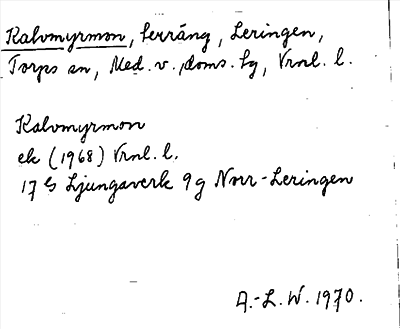 Kalvmyrmon, terräng, Leringen,
Torps sn, Med. v. doms. hg, Vrnl. l.
Kalvmyrmon
ek (1968) Vrnl. l.
17 G Ljungaverk 9 g Norr-Leringen
A.-L. W. 1970.